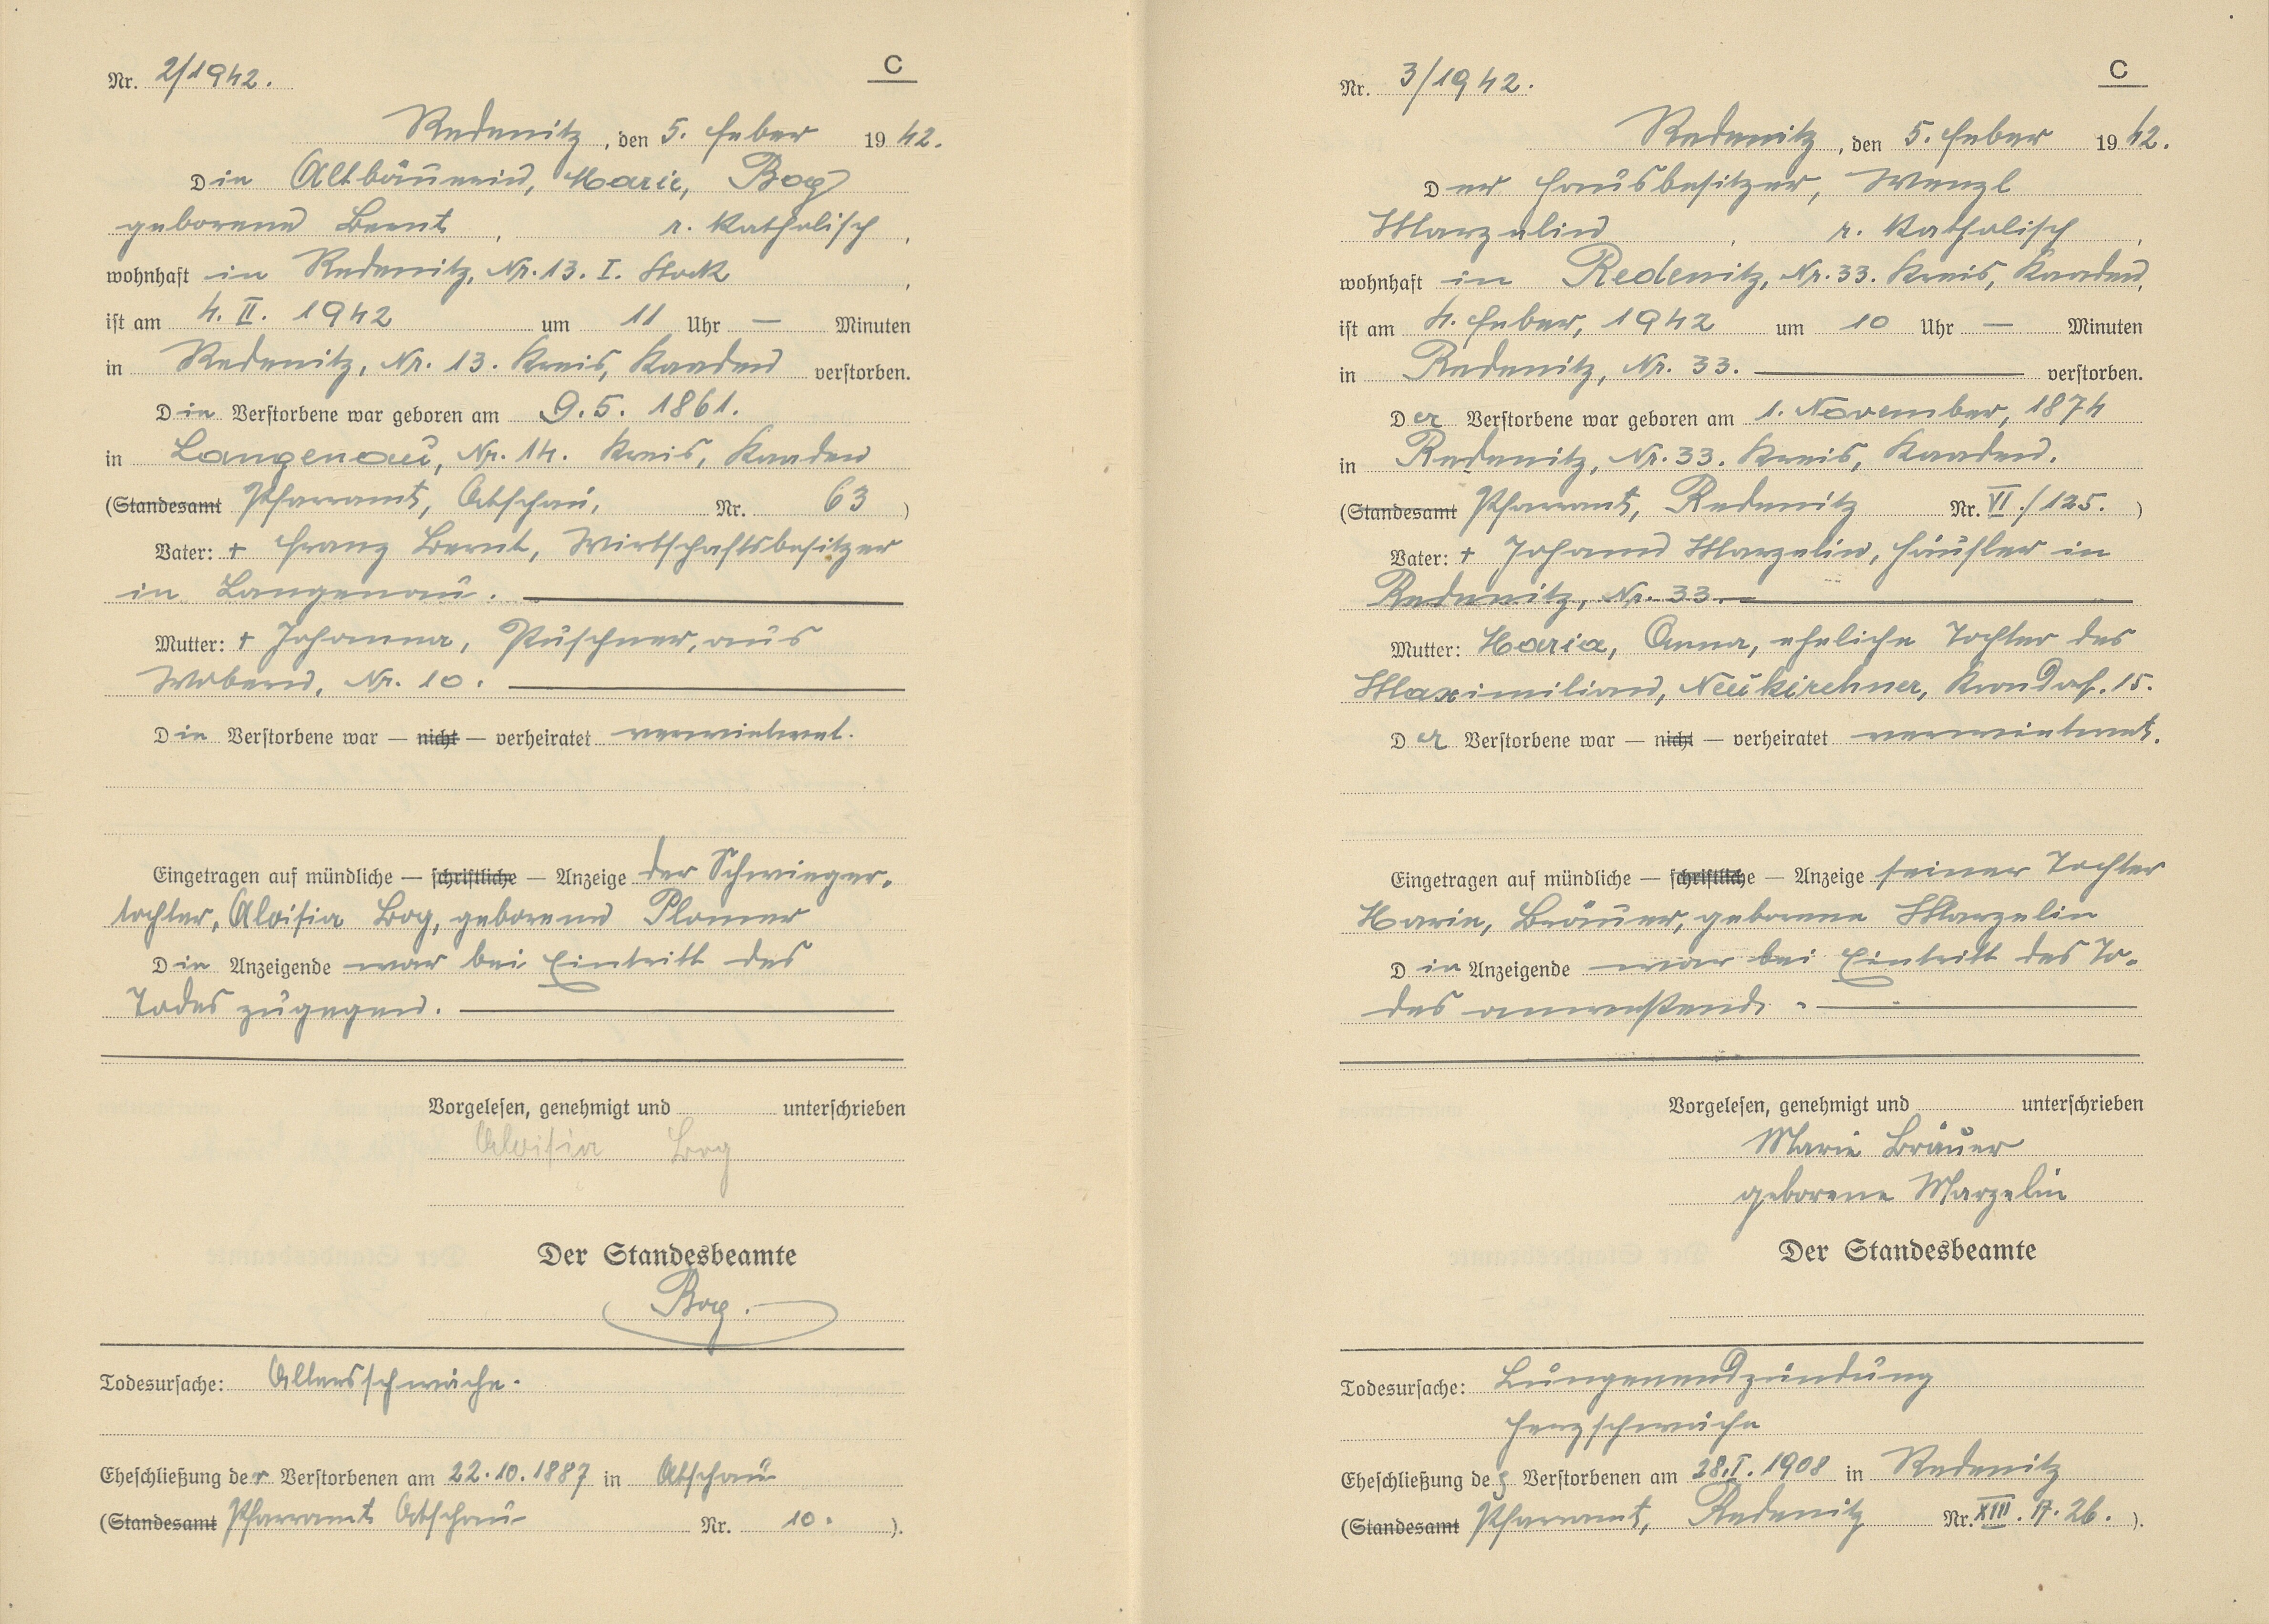 Nr. 2/1942.
C
Redenitz, den 5. Feber 1942.
Die Altbäuerin, Marie, Bog
geborene Bernt, r. katholisch,
wohnhaft in Redenitz, Nr. 13. I. Stock,
ist am 4. II. 1942 um 11 Uhr — Minuten
in Redenitz, Nr. 13. Kreis, Kaaden verstorben.
Die Verstorbene war geboren am 9. 5. 1861.
in Langenau, Nr. 14. Kreis, Kaaden
(Standesamt Pfarramt, Atschau, Nr. 63)
Vater: + Franz Bernt, Wirtschaftsbesitzer
in Langenau.
Mutter: + Johanna, Puschner, aus
Wobern, Nr. 10.
Die Verstorbene war — nicht — verheiratet verwietwet.
Eingetragen auf mündliche — schriftliche — Anzeige der Schwieger-
tochter, Aloisia Bog, geborene Plomer
Die Anzeigende war bei Eintritt des
Todes zugegen.
Vorgelesen, genehmigt und unterschrieben
Aloisia Bog
Der Standesbeamte
Bog.
Todesursache: Altersschwäche.
Eheschließung der Verstorbenen am 22. 10. 1887 in Atschau
(Standesamt Pfarramt Atschau Nr. 10.).
Nr. 3/1942.
C
Redenitz, den 5. Feber 1942.
Der Hausbesitzer, Wenzl
Marzelin, r. katholisch,
wohnhaft in Redenitz, Nr. 33. Kreis, Kaaden,
ist am 4. Feber, 1942 um 10 Uhr — Minuten
in Redenitz, Nr. 33. verstorben.
Der Verstorbene war geboren am 1. November, 1874
in Redenitz, Nr. 33. Kreis, Kaaden.
(Standesamt Pfarramt, Redenitz Nr. VI./125.)
Vater: + Johann Marzelin, Häusler in
Redenitz, Nr. 33.
Mutter: Maria, Anna, eheliche Tochter des
Maximilian, Neukirchner, Krondorf. 15.
Der Verstorbene war — nicht — verheiratet verwietwet.
Eingetragen auf mündliche — schriftliche — Anzeige seiner Tochter
Marie, Bräuer, geborene Marzelin
Die Anzeigende war bei Eintritt des To-
des anwesend.
Vorgelesen, genehmigt und unterschrieben
Marie Bräuer
geborene Marzelin
Der Standesbeamte
Todesursache: Lungenendzündung
Herzschwäche
Eheschließung des Verstorbenen am 28. I. 1908 in Redenitz
(Standesamt Pfarramt, Redenitz Nr. XIII. 17. 26.).